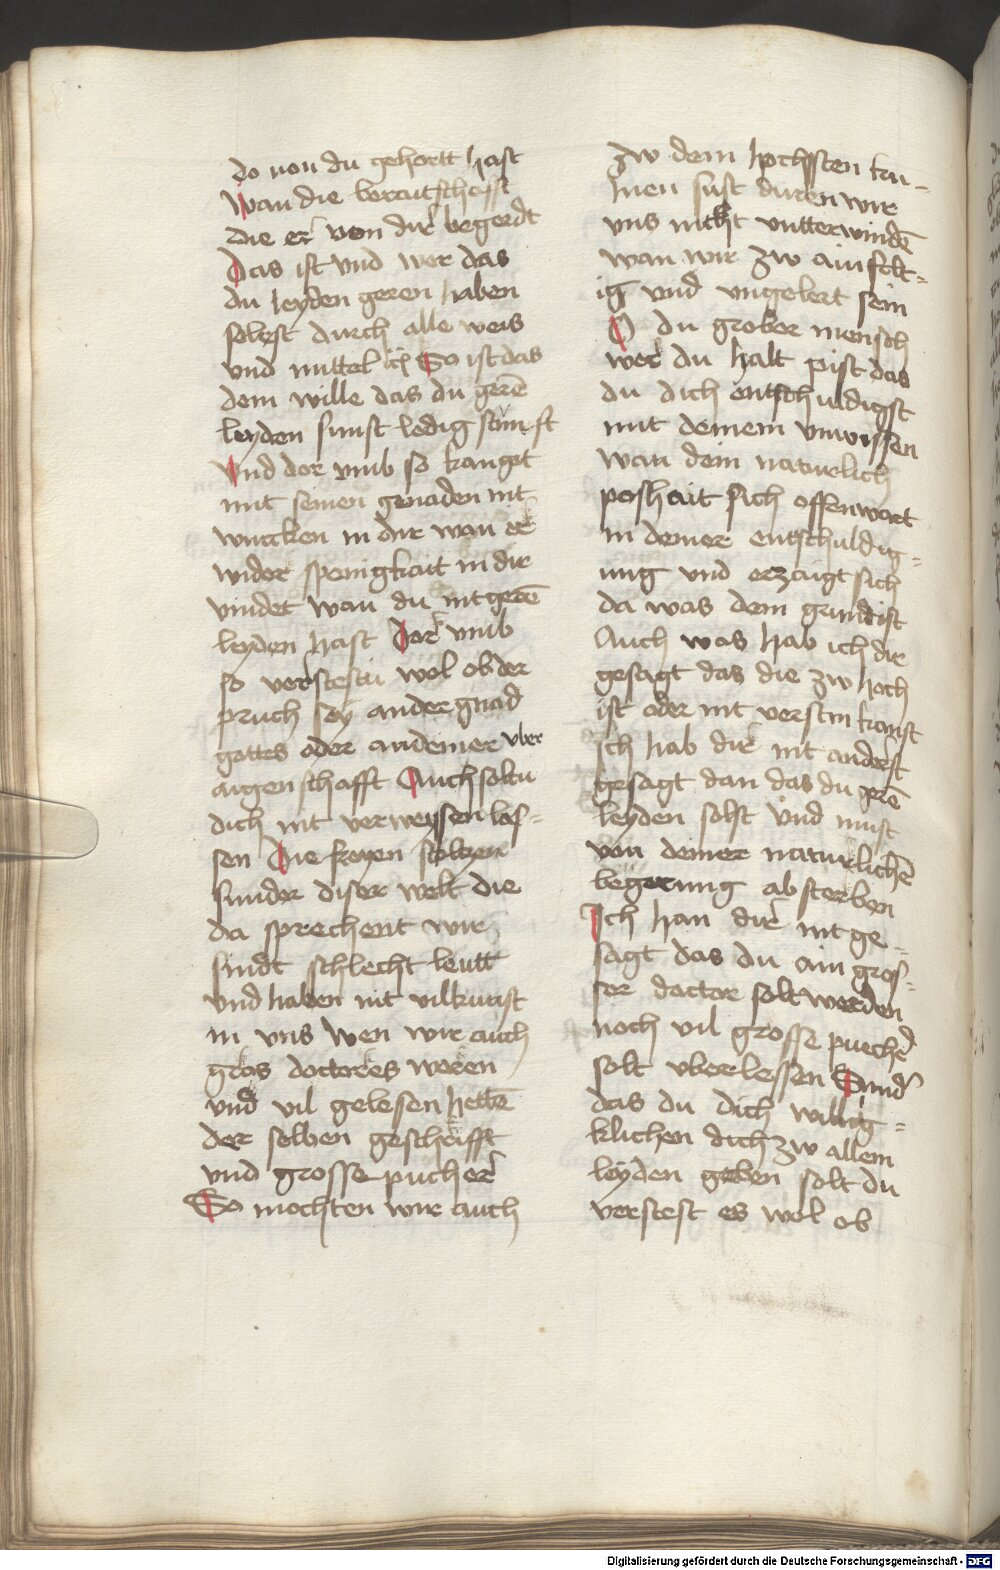 do von du gehortt hast
Wan die beraitschafft
die er von dir begerdt
Das ist vnd wer das
du leyden geren haben
solest durch alle weis
vnd mittel So ist das
dein wille das du gerē
leyden sunst ledig
Vnd dor vmb so kan got
mit seinen genaden nit
wurcken in dir wan er
wider spenigkait in dir
vindet wan du nit gerē
leyden hast Dor vmb
so verstestu wol ob der
pruch sey an der gnad
gottes oder an deiner vber
aigenschafft Auch soltu
dich nit verweyssen las-
sen Die freyen stoltzen
sunder diser welt die
da sprechent wir
sindt schlecht leutt
vnd haben nit vil kunst
in vns wen wir auch
gros doctores weren
vnd vil gelesen hettē
der selben geschrifft
vnd grosse pucher
So mochten wir auch
zw dem hochsten ku-
men sust duren wir
vns nicht vntterwindē
wan wir zw ainfelt-
ig vnd vngelert sein
O du grober mensch
wer du halt pist das
du dich entschuldigst
mit deinem vnwissen
wan dein naturlich
poshait sich offenwart
in deiner entschuldig-
ung vnd erzaigt sich
da was dein grund ist
Auch was hab ich dir
gesagt das die zw hoch
ist oder nit verstin kanst
Ich hab dir nit anderst
gesagt dan das du gerē
leyden solst vnd must
von deiner naturlichē
begerung absterben
Ich han dir nit ge-
sagt das du ain gros-
ser doctor solt werden
noch vil grosse puecher
solt vberlessen Sunder
das du dich willig-
klichen dich zw allem
leyden geben solt du
verstest es wol ob
Digitalisierung gefördert durch die Deutsche Forschungsgemeinschaft - DFG